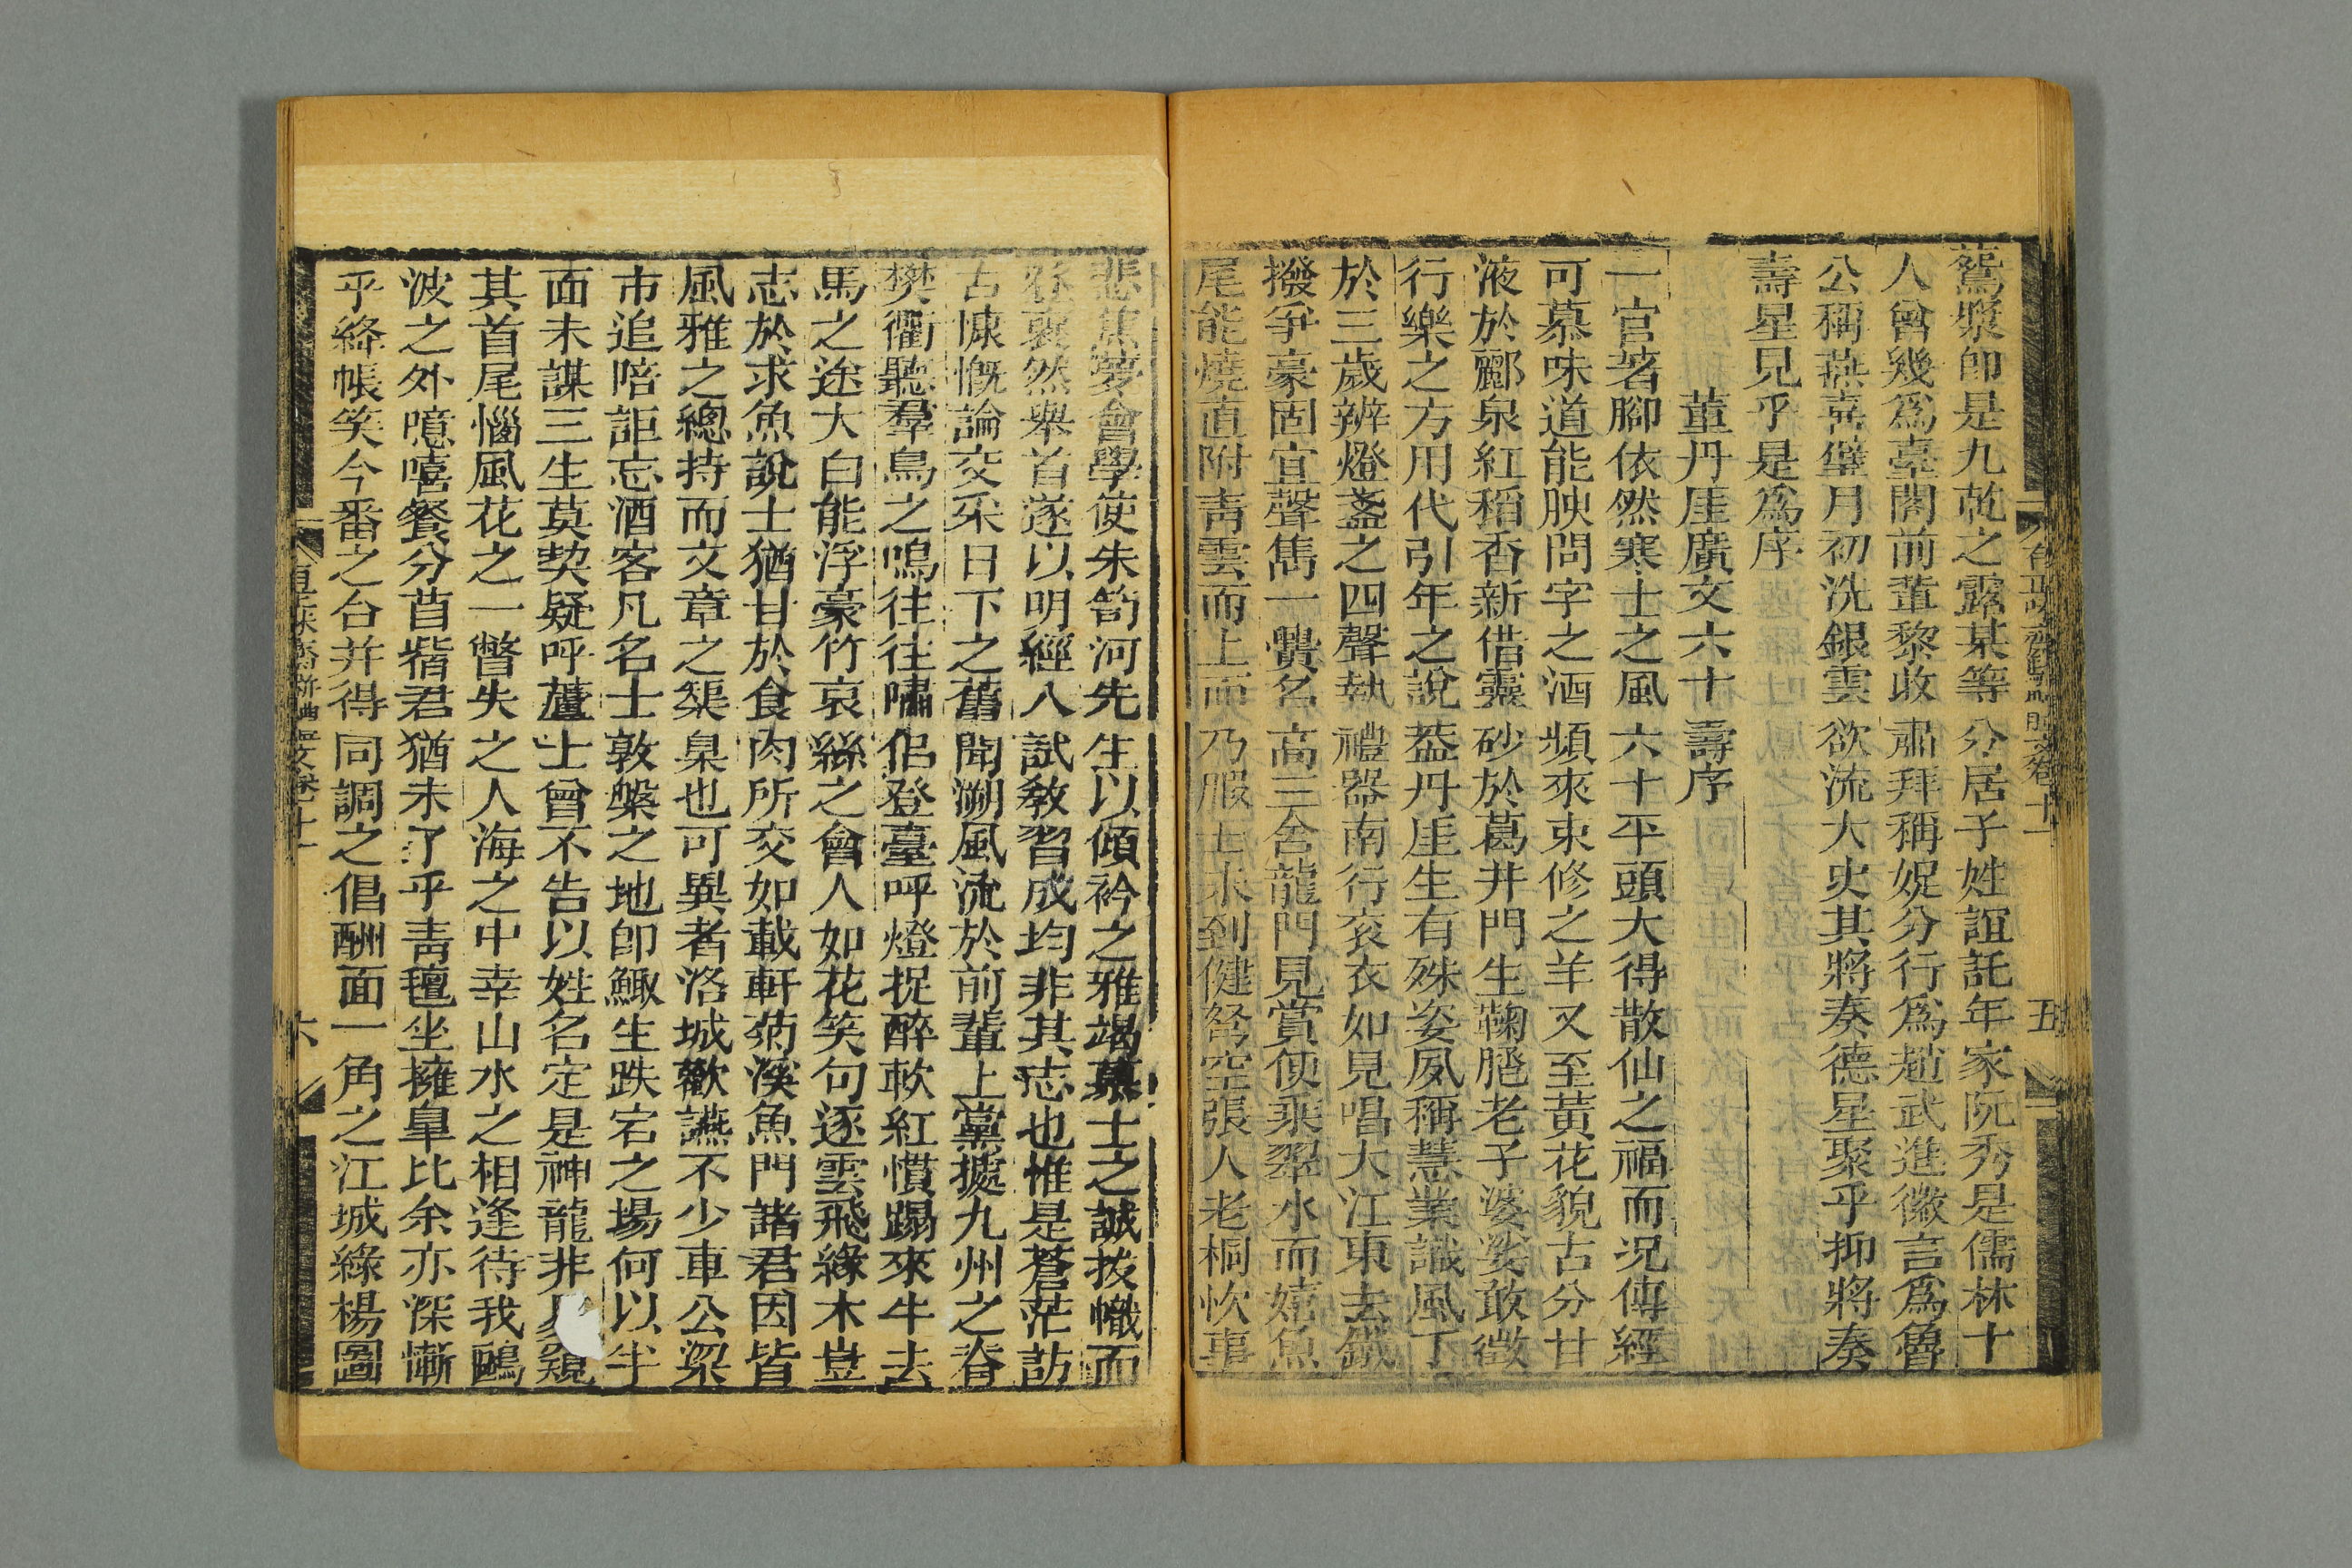 鴛漿即是九乾之露某等分居子姓誼託年家阮秀是儒林十
人曾幾爲臺閣前輩黎收肅拜稱娖分行爲趙武進徽言爲魯
公稱燕喜璧月初洗銀雲欲流大史其將奏德星聚乎抑將奏
壽星見乎是爲序
董丹厓廣文六十壽序
一官著腳依然寒士之風六十平頭大得散仙之福而况傳經
可慕味道能腴問字之酒頻來束修之羊又至黃花貌古分甘
液於酈泉紅稻香新借靈砂於葛井門生鞠𦜕老子婆娑敢徵
行樂之方用代引年之說葢丹厓生有殊姿夙稱慧業識風丁
於三歲辨燈盞之四聲執禮器南行衮衣如見唱大江東去鐵
撥爭豪固宜聲雋一黌名高三舍龍門見賞便乘翠水而嬉魚
尾能燒直附靑雲而上而乃服士未到健弩空張人老桐忺事
悲蕉夢會學使朱笥河先生以傾衿之雅竭慕士之誠拔幟而
登裒然舉首遂以明經入試敎習成均非其志也惟是蒼茫訪
古慷慨論交采日下之舊聞溯風流於前輩上黨據九州之脊
樊衢聽羣鳥之鳴往往嘯侶登臺呼燈捉醉軟紅慣蹋來牛去
馬之途大白能浮豪竹哀絲之會人如花笑句逐雲飛緣木豈
志於求魚說士猶甘於食肉所交如載軒菊溪魚門諸君因皆
風雅之總持而文章之渠臬也可異者洛城歡讌不少車公梁
市追陪詎忘酒客凡名士敦槃之地即鯫生跌宕之場何以半
面未謀三生莫契疑呼蘆士曾不告以姓名定是神龍非易窺
其首尾惱風花之一瞥失之人海之中幸山水之相逢待我鷗
波之外噫嘻餐分苜蓿君猶未了乎靑氊坐擁臯比余亦深慚
乎絳帳笑今番之台并得同調之倡酬面一角之江城綠楊圖
五
六